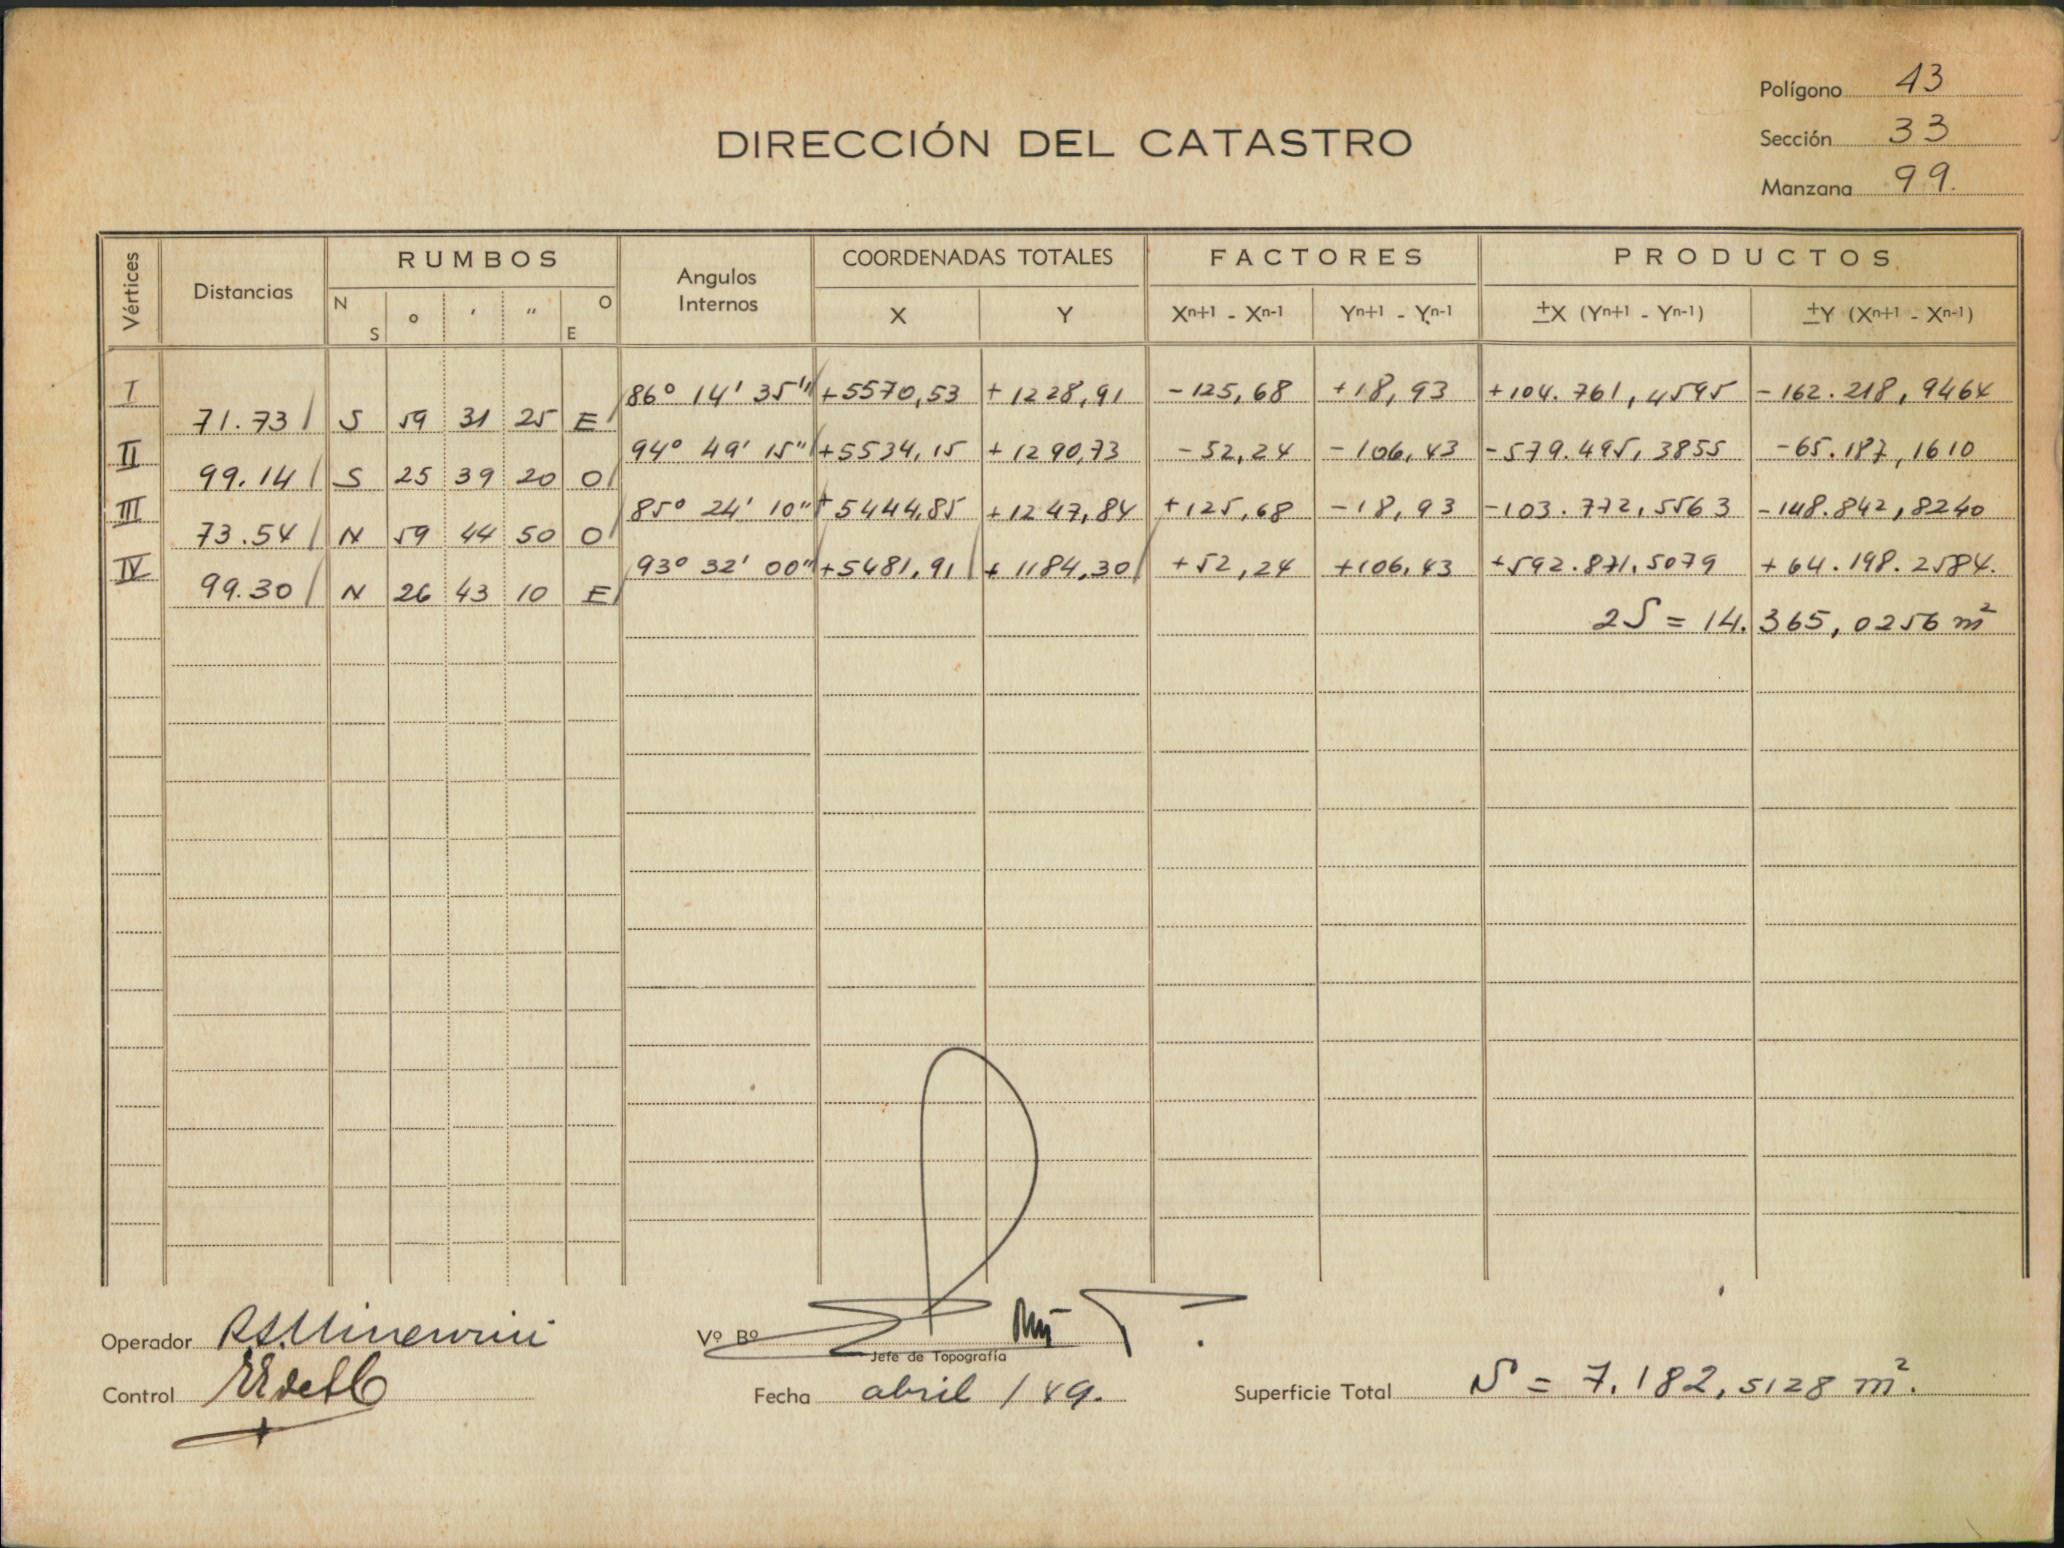 Polígono 43
DIRECCIÓN DEL CATASTRO
Sección 33
Manzana 99.
Vértices Distancias RUMBOS Angulos Internos COORDENADAS TOTALES FACTORES PRODUCTOS
N S ° ' " O E X Y Xn+1 - Xn-1 Yn+1 - Yn-1 ±X (Yn+1 - Yn-1) ±Y (Xn+1 - Xn-1)
I 86° 14' 35" +5570,53 +1228,91 -125,68 +18,93 +104.761,4595 -162.218,9464
71.73 S 59 31 25 E
II 94° 49' 15" +5534,15 +1290,73 -52,24 -106,43 -579.495,3855 -65.187,1610
99.14 S 25 39 20 O
III 85° 24' 10" +5444,85 +1247,84 +125,68 -18,93 -103.772,5563 -148.842,8240
73.54 N 59 44 50 O
IV 93° 32' 00" +5481,91 +1184,30 +52,24 +106,43 +592.871,5079 +64.198.2584.
99.30 N 26 43 10 E
2S = 14.365,0256 m²
Operador
Vº Bº
Jefe de Topografía
Control
Fecha abril / 49.
Superficie Total S = 7.182,5128 m².